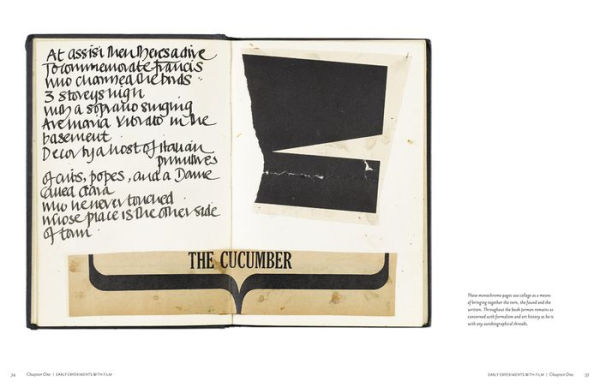 At assisi then theres a dive
To commemorate francis
who charmed the birds
3 storeys high
with a soprano singing
Ave maria Vibrato in the
basement
Decor by a host of italian
primitives
of popes, and a Dame
called clara
who he never touched
whose place is the other side
of town
THE CUCUMBER
These monochrome pages use collage as a means
of bringing together the torn, the found and the
written. Throughout the book Jarman remains as
concerned with formalism and art history as he is
with any autobiographical threads.
Chapter One | EARLY EXPERIMENTS WITH FILM
EARLY EXPERIMENTS WITH FILM | Chapter One